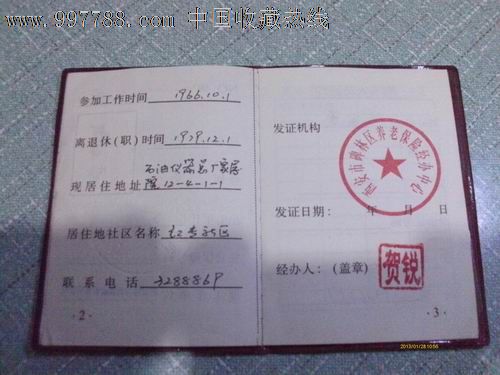 www.997788.com 中国收藏热线
参加工作时间 1966.10.1
离退休(职)时间 1979.12.1
石油仪器总厂家属
现居住地址 院 12-4-1-1
居住地社区名称 红专社区
联系电话 3288869
·2·
发证机构
西安市碑林区养老保险经办中心
发证日期: 年 月 日
经办人:(盖章) 贺锐
·3·
2013/01/28 10:56